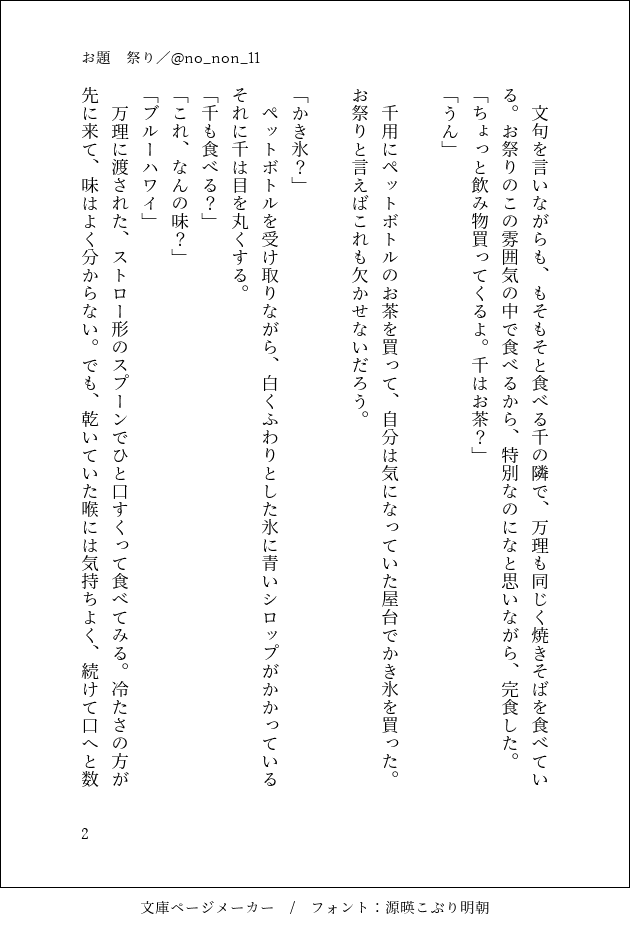 お題　祭り／@no_non_11
　文句を言いながらも、もそもそと食べる千の隣で、万理も同じく焼きそばを食べてい
る。お祭りのこの雰囲気の中で食べるから、特別なのになと思いながら、完食した。
「ちょっと飲み物買ってくるよ。千はお茶？」
「うん」
　千用にペットボトルのお茶を買って、自分は気になっていた屋台でかき氷を買った。
お祭りと言えばこれも欠かせないだろう。
「かき氷？」
　ペットボトルを受け取りながら、白くふわりとした氷に青いシロップがかかっている
それに千は目を丸くする。
「千も食べる？」
「これ、なんの味？」
「ブルーハワイ」
　万理に渡された、ストロー形のスプーンでひと口すくって食べてみる。冷たさの方が
先に来て、味はよく分からない。でも、乾いていた喉には気持ちよく、続けて口へと数
2
文庫ページメーカー　/　フォント：源暎こぶり明朝